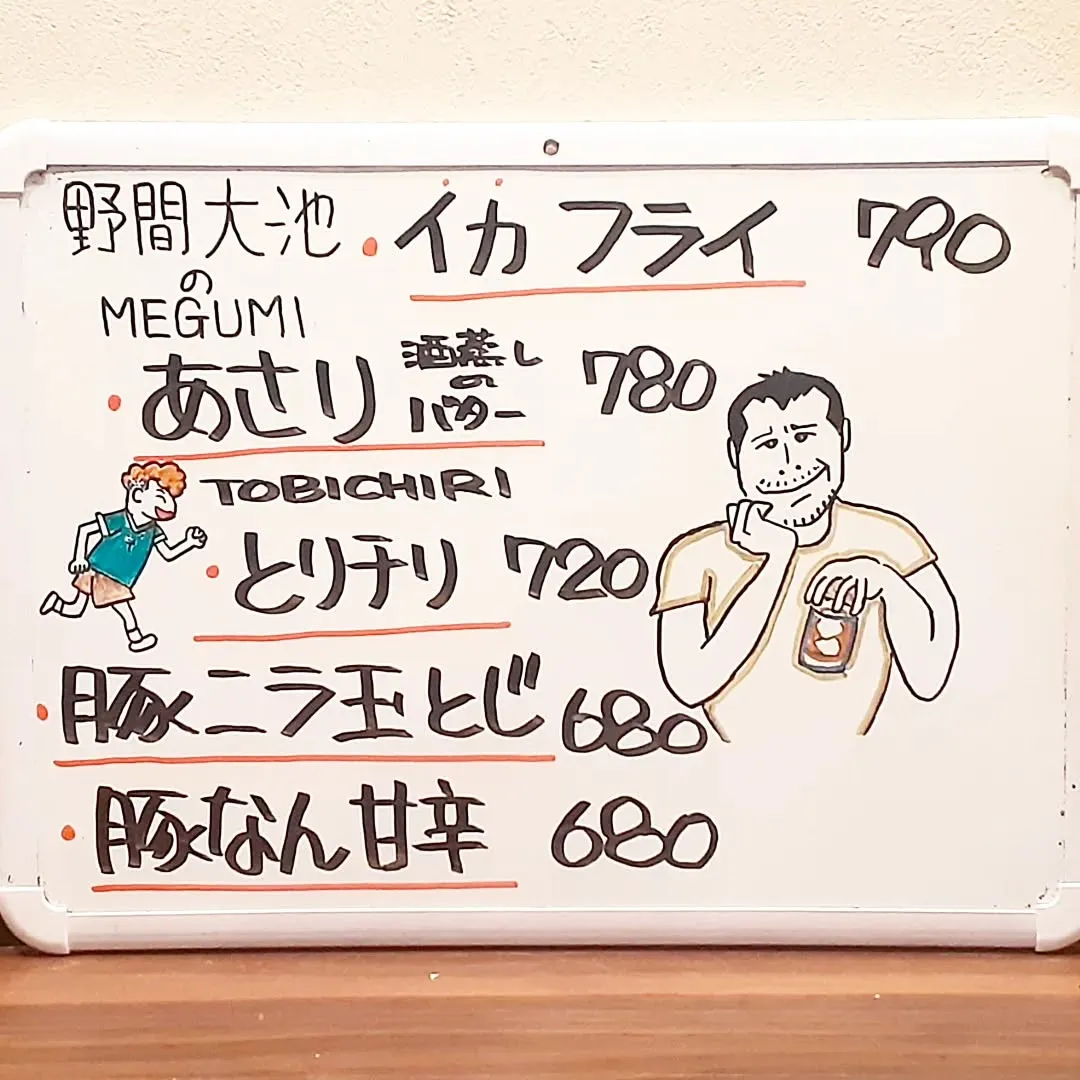 野間大池
の
MEGUMI
・イカ フライ 790
・あさり 酒蒸し
の
バター 780
TOBICHIRI
・とりチリ 720
・豚ニラ玉とじ 680
・豚なん甘辛 680